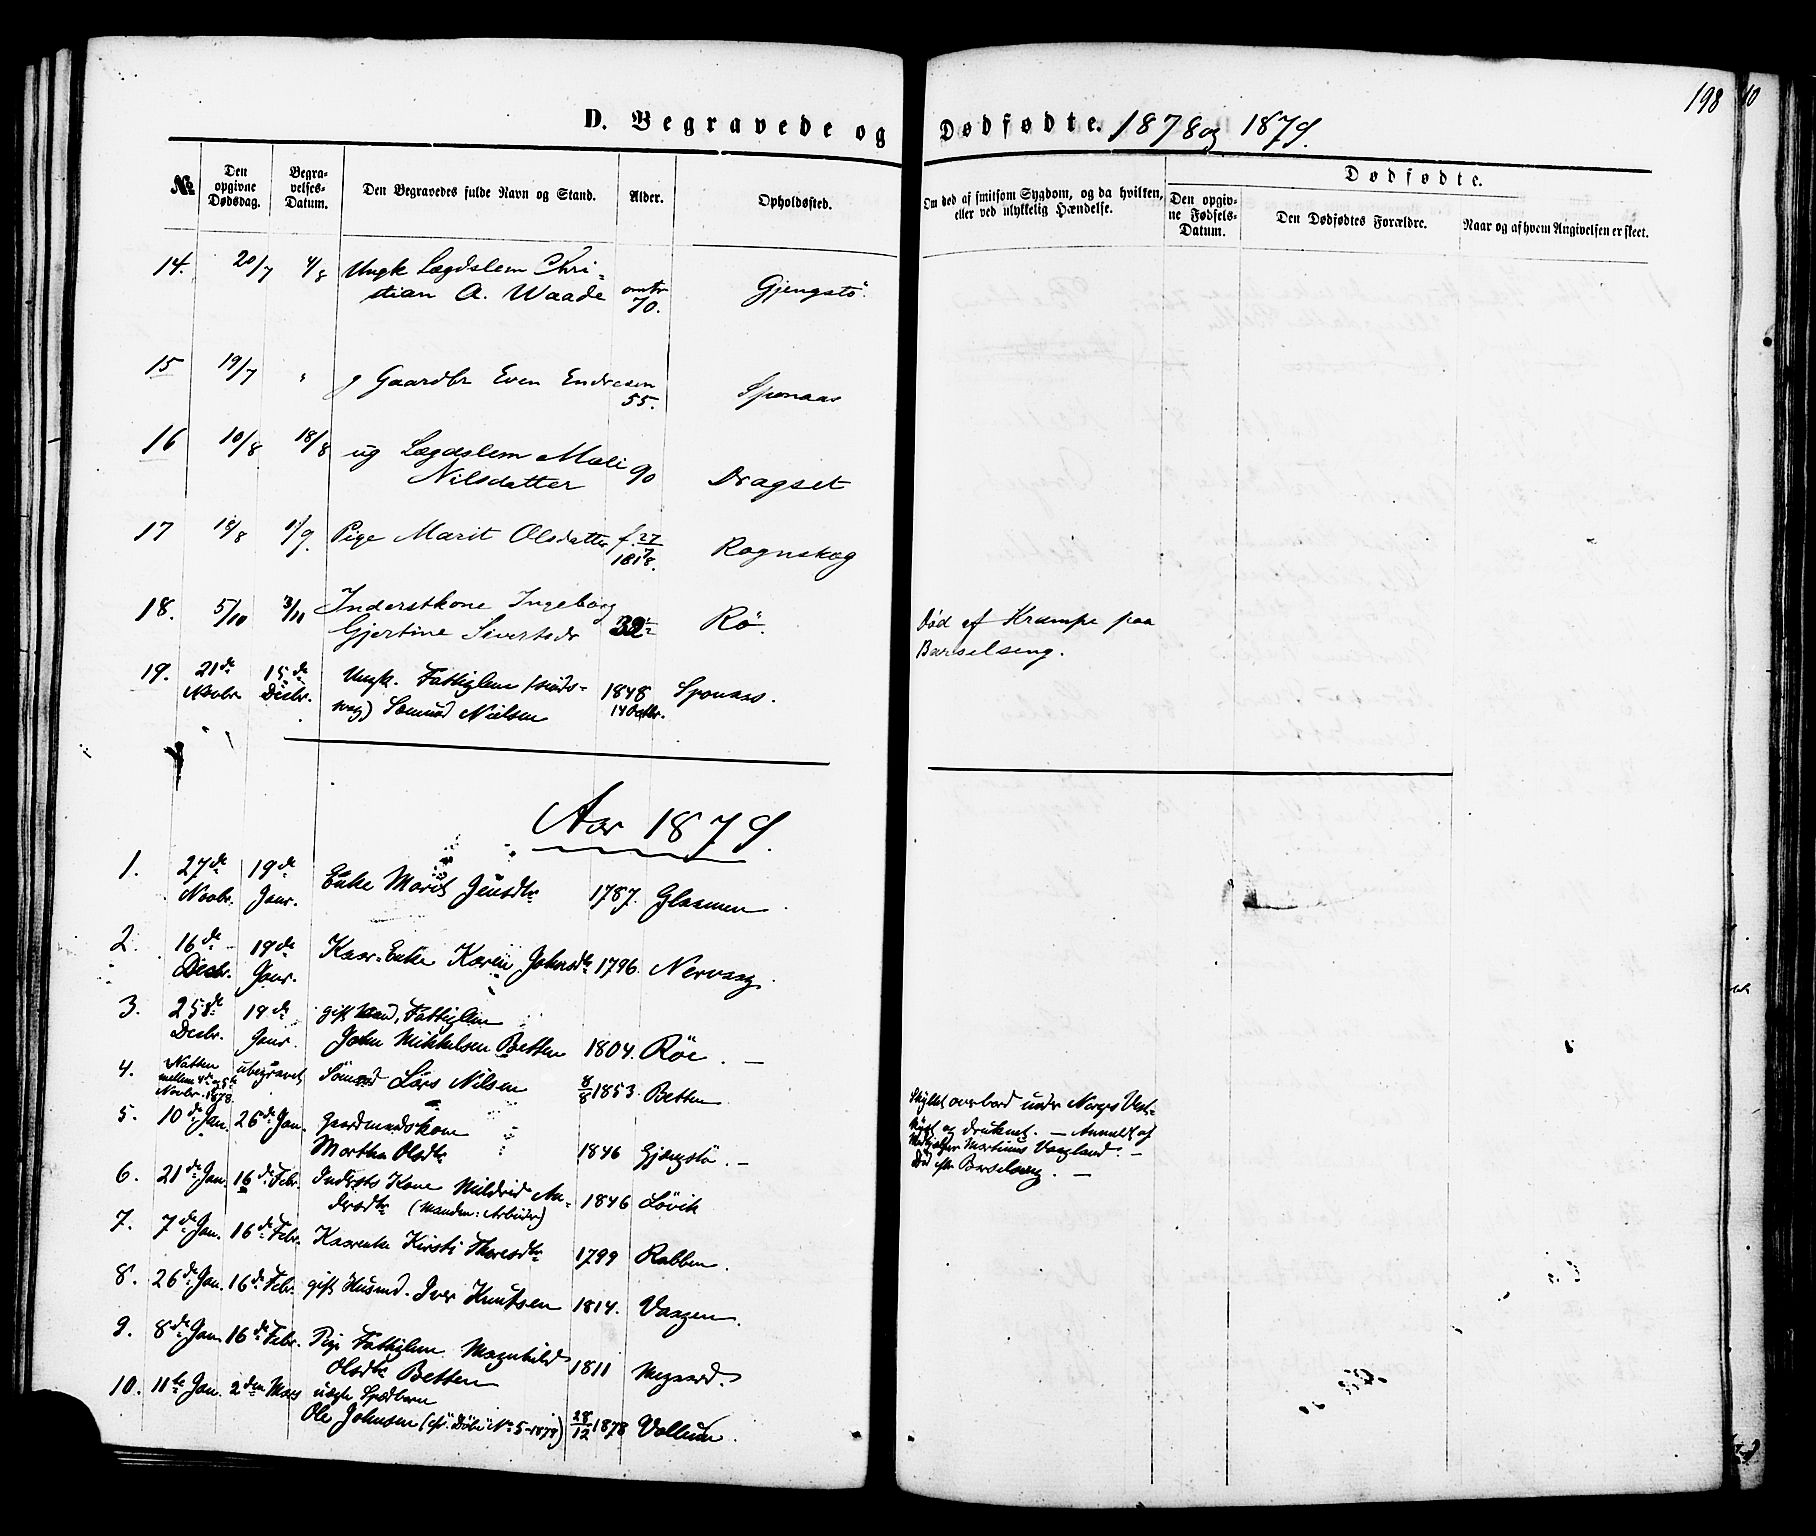 198
10
D. Begravede og Dødfødte. 1878 og 1879.
№
Den opgivne Dødsdag.
Begravelses-Datum.
Den Begravedes fulde Navn og Stand.
Alder.
Opholdssted.
Om død af smitsom Sygdom, og da hvilken, eller ved ulykkelig Hændelse.
Dødfødte.
Den opgivne Fødsels-Datum.
Den Dødfødtes Forældre.
Naar og af hvem Angivelsen er skeet.
14. 20/7 4/8 Ungk Lægdslem Chri-
stian A. Waade omtr 70. Gjengstö.
15 19/7 " g Gaardbr Even Endresen
55. Sponaas
16 10/8 18/8 ug Lægdslem Mali
Nilsdatter 90 Dragset
17 18/8 1/9. Pige Marit Olsdatter f. 27/7 1818. Rognskog
18. 5/10 3/11 Inderstkone Ingeborg
Gjertine Sivertsdr Rö.
Död af Krampe paa
Barselseng.
19. 21de Novbr. 15de Decbr. Ungk. Fattiglem (sinds-
svag) Sömund Nielsen 1848 14 Octbr. Sponaas.
Aar 1879.
1. 27de Novbr. 19de Janr. Enke Marit Jensdtr 1787. Glasmen
2. 16de Decbr. 19de Janr. Kaar-Enke Karen Johnsdtr 1796. Nervaag.
3. 25de Decbr. 19de Janr. gift Mand, Fattiglem
John Mikkelsen Betten 1804. Röe. —
4. Natten mellem 4de og 5te Novbr. 1878 ubegravet Sömand Lars Nilsen 8/8 1853. Betten
Skyllet overbord under Norges Vest-
kyst og druknet. — Anmeldt af
Medhjælper Martinus Vaagland. —
5. 10de Jan. 26de Jan. Gaardmandskone
Martha Olsdtr 1846 Gjengstö. —
Död efter Barselseng. —
6. 21de Jan. 16de Febr. Inderst Kone Mildrid An-
dersdtr (Manden: Arbeider) 1846 Lövik
7. 7de Jan. 16de Febr. Kaarenke Kirsti Thoresdtr 1799 Rabben.
8. 26de Jan. 16de Febr. gift Husmd. Iver Knutsen 1814. Vaagen.
9. 8de Jan. 16de Febr. Pige Fattiglem Magnhild
Olsdtr Betten 1811 Megaard.
10. 11te Jan. 2den Mars uægte Spædbarn
Ole Johnsen (cfr. Döbte No 5-1879) 28/12 1878 Vollum.